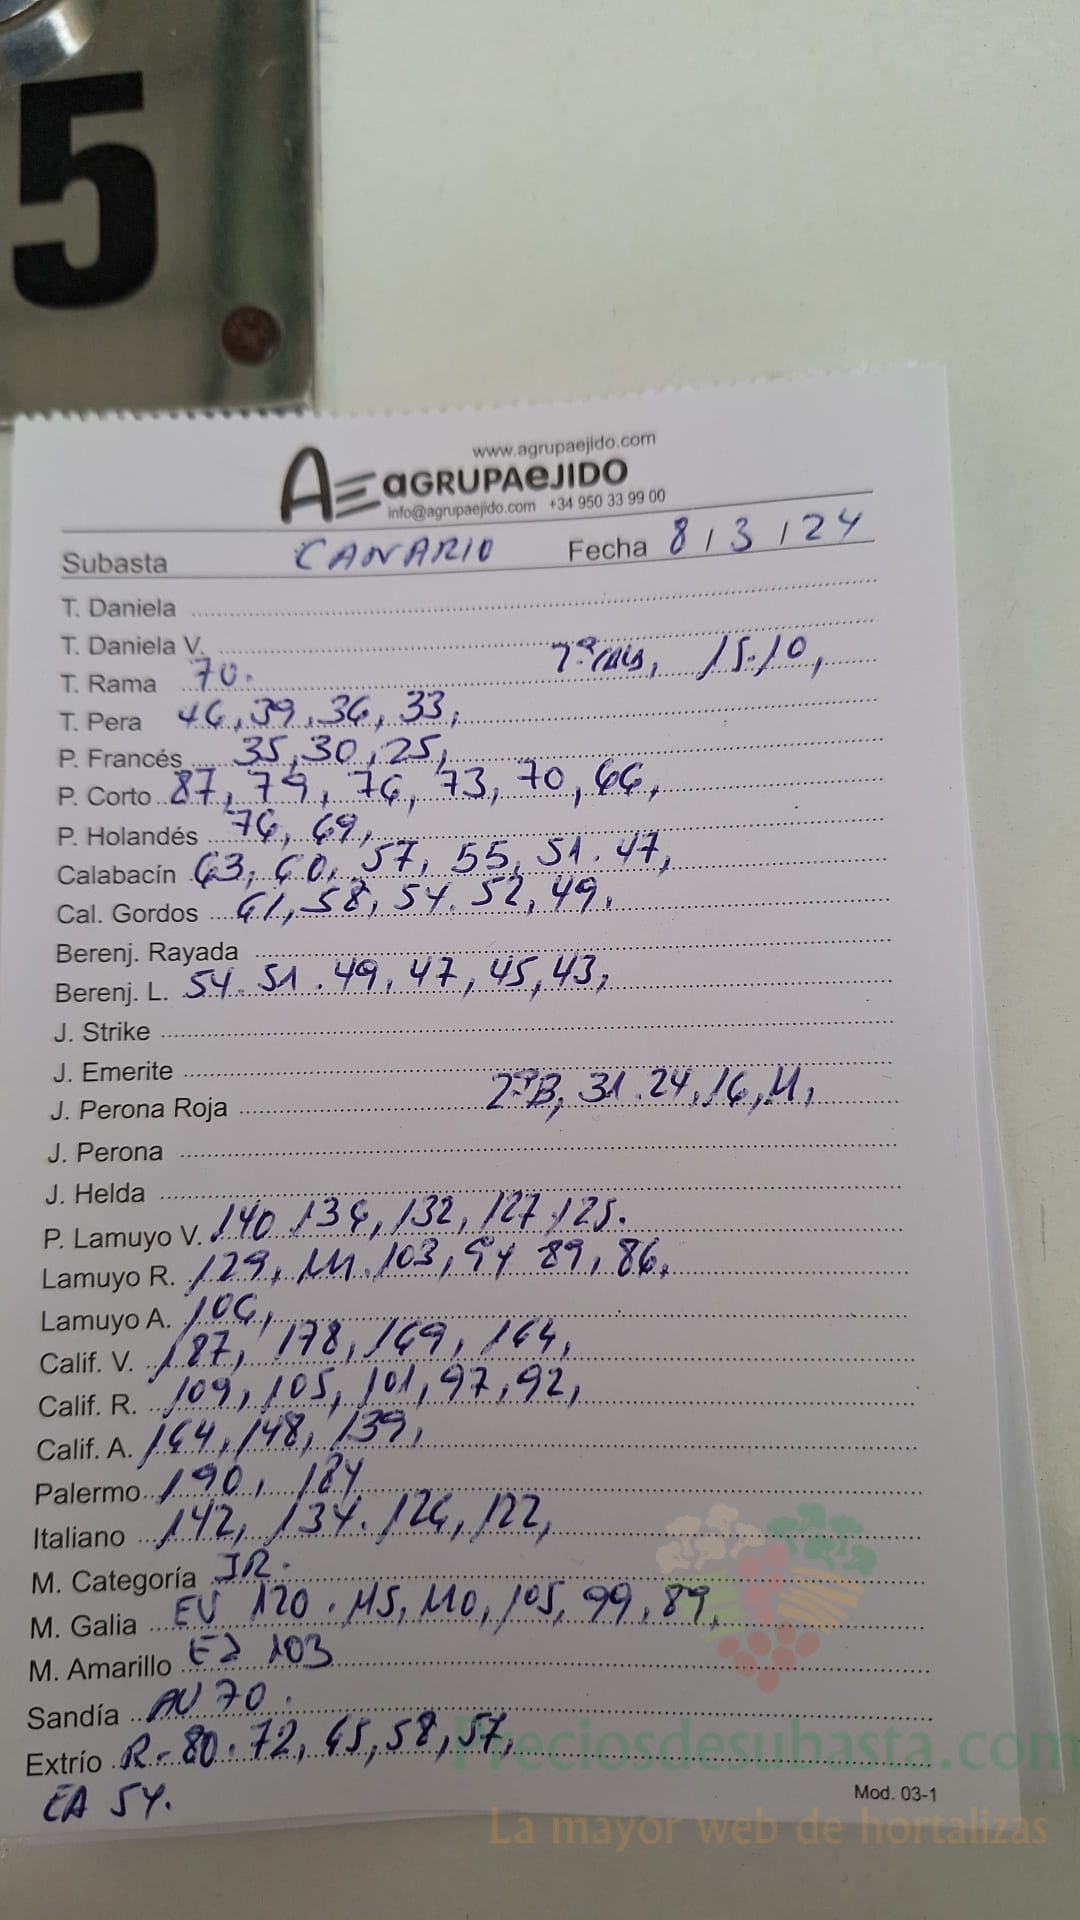 5
www.agrupaejido.com
AE aGRUPAeJIDO
info@agrupaejido.com +34 950 33 99 00
Subasta CANARIO Fecha 8 / 3 / 24
T. Daniela
T. Daniela V.
T. Rama 70. 15.10,
T. Pera 46, 39, 36, 33,
P. Francés 35, 30, 25,
P. Corto 87, 79, 76, 73, 70, 66,
P. Holandés 76, 69,
Calabacín 63, 60, 57, 55, 51. 47,
Cal. Gordos 61, 58, 54. 52, 49,
Berenj. Rayada
Berenj. L. 54. 51. 49, 47, 45, 43,
J. Strike
J. Emerite
J. Perona Roja 2ªB, 31. 24, 16, 11,
J. Perona
J. Helda
P. Lamuyo V. 140 136, 132, 127. 125.
Lamuyo R. 129, 111. 103, 94 89, 86,
Lamuyo A. 106,
Calif. V. 187, 178, 169, 164,
Calif. R. 109, 105, 101, 97, 92,
Calif. A. 164, 148, 139,
Palermo 190, 184
Italiano 142, 134. 126, 122,
M. Categoría JR.
M. Galia EV 120. 115, 110, 105, 99, 89,
M. Amarillo EJ 103
Sandía AV 70.
Extrío R- 80. 72, 65, 58, 57,
EA 54.
Mod. 03-1
Preciosdesubasta.com
La mayor web de hortalizas